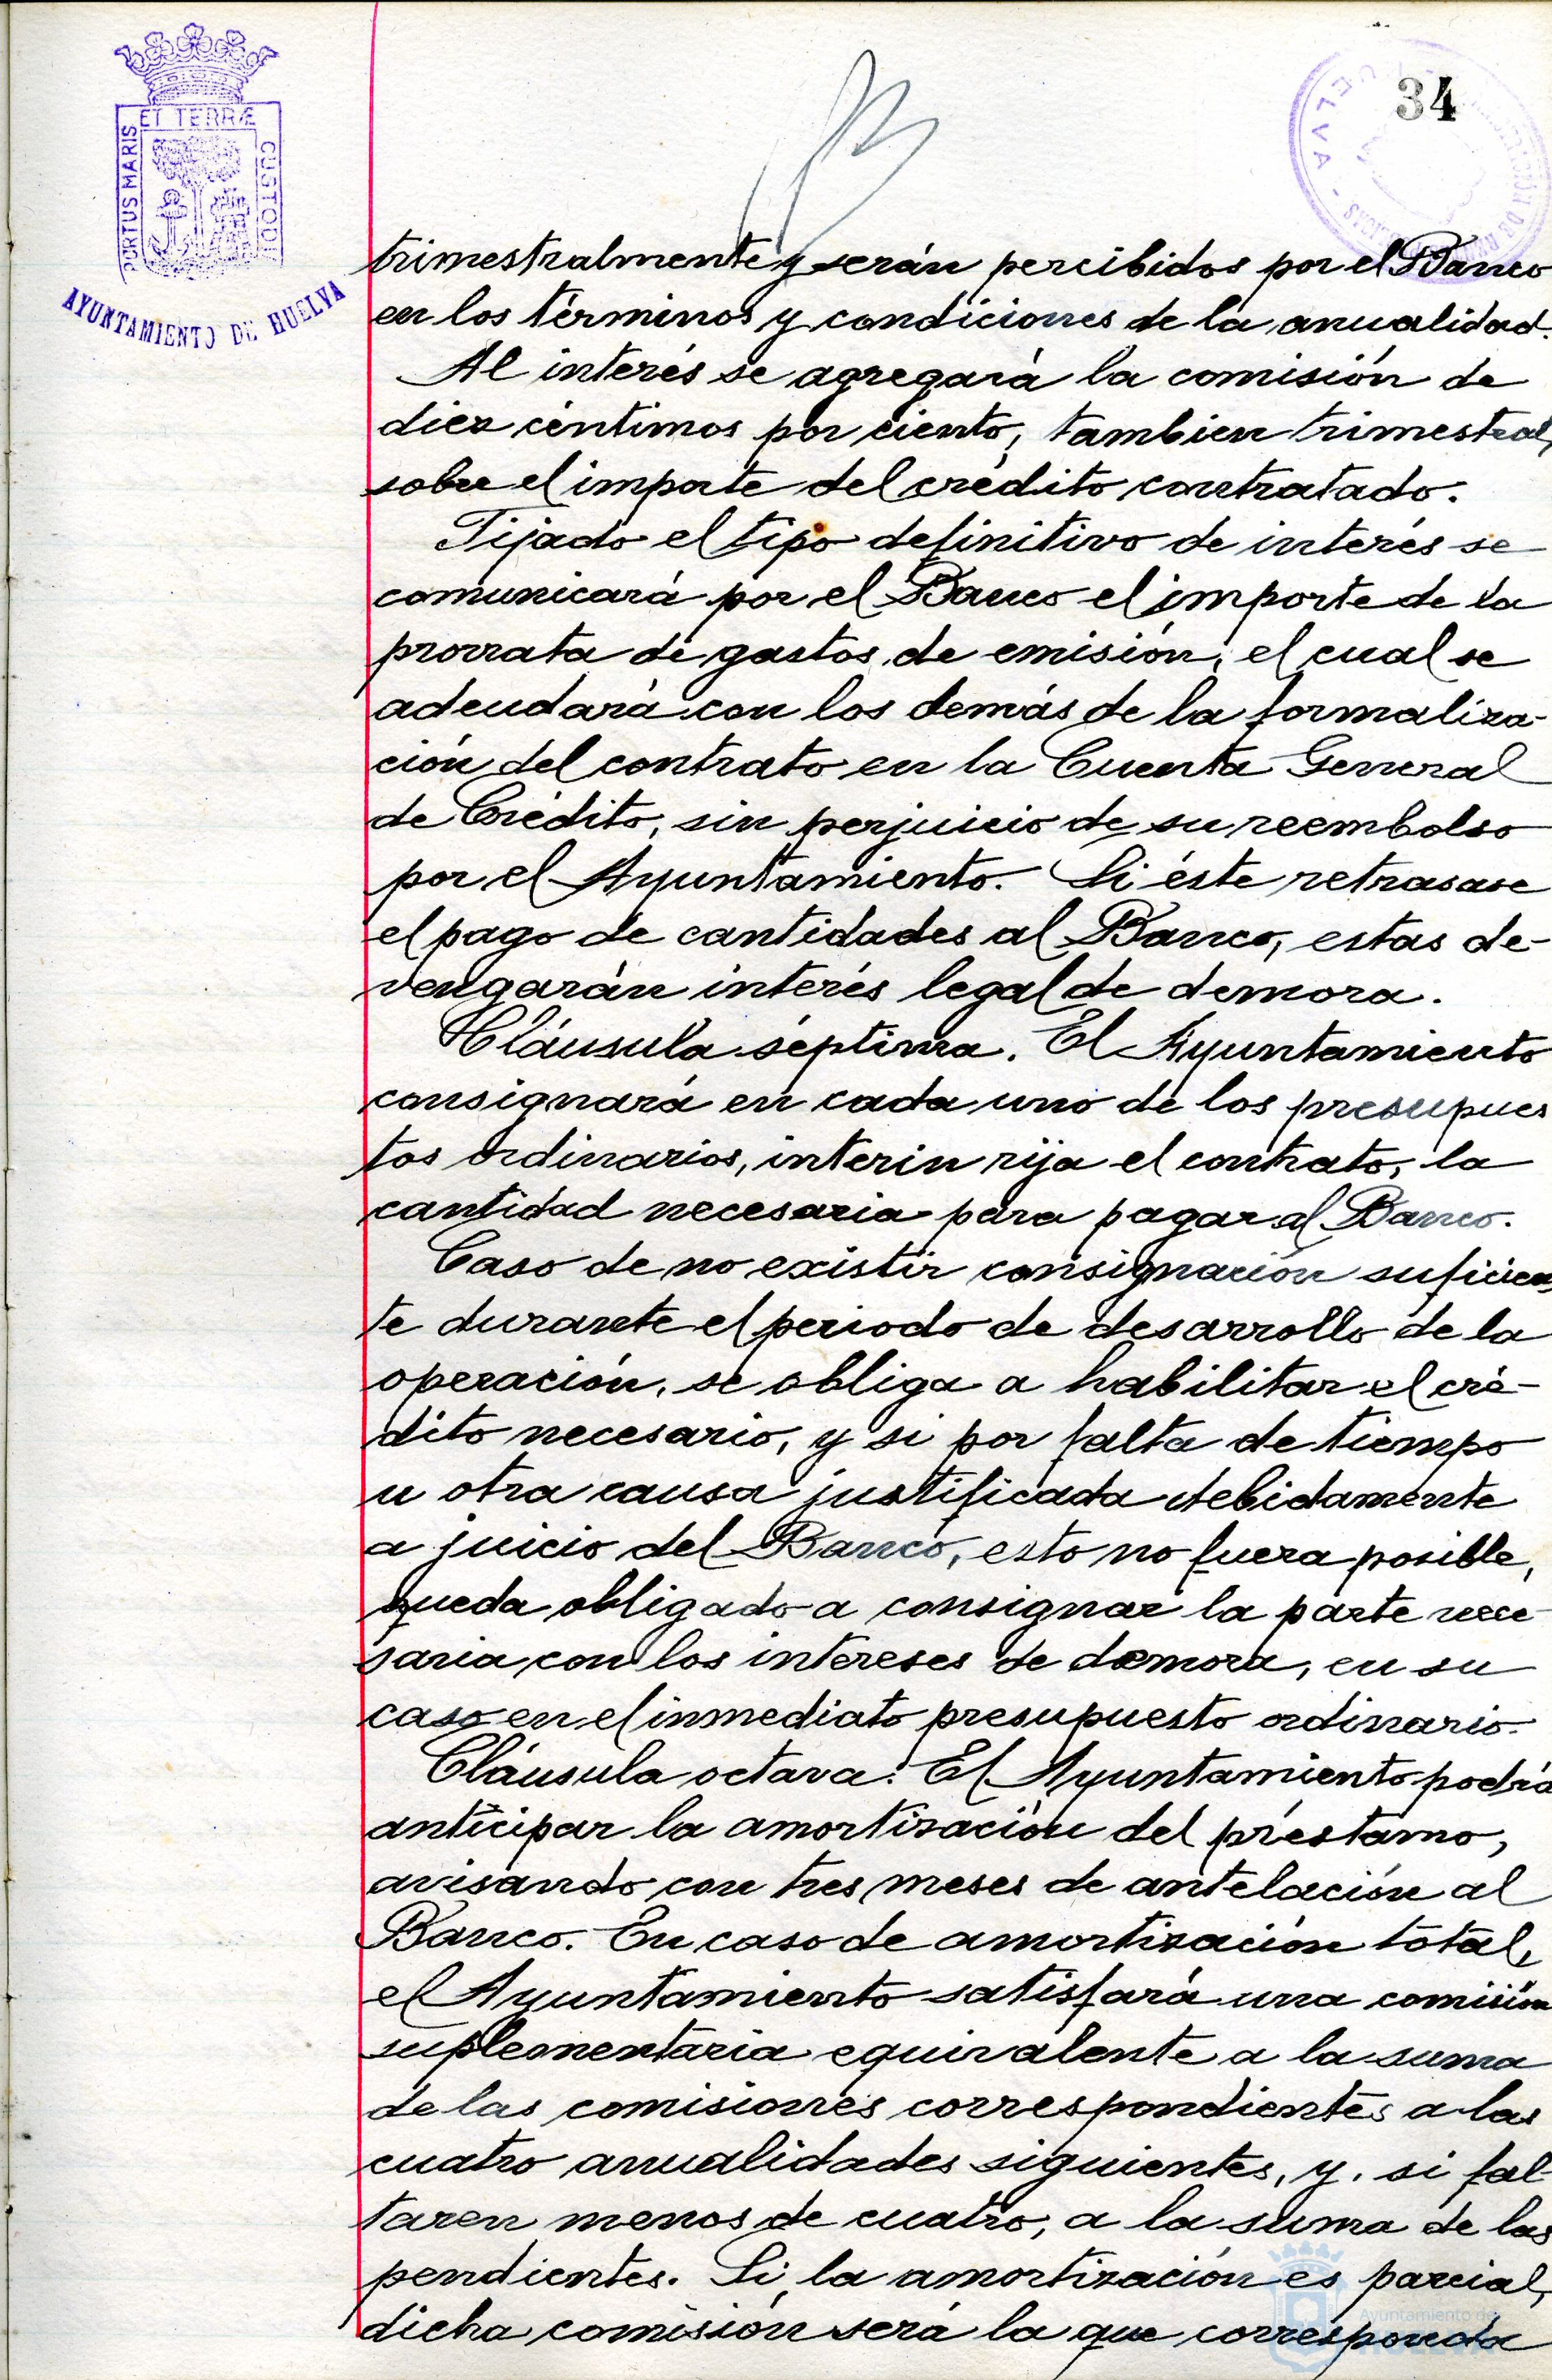 34
PORTUS MARIS
ET TERRÆ
CUSTODI
AYUNTAMIENTO DE HUELVA
trimestralmente y serán percibidos por el Banco
en los términos y condiciones de la anualidad.
Al interés se agregará la comisión de
diez céntimos por ciento, tambien trimestral,
sobre el importe del crédito contratado.
Fijado el tipo definitivo de interés se
comunicará por el Banco el importe de la
prorrata de gastos de emisión, el cual se
adeudará con los demás de la formaliza-
ción del contrato en la Cuenta General
de Crédito, sin perjuicio de su reembolso
por el Ayuntamiento. Si éste retrasase
el pago de cantidades al Banco, estas de-
vengarán interés legal de demora.
Cláusula séptima. El Ayuntamiento
consignará en cada uno de los presupues
tos ordinarios, interin rija el contrato, la
cantidad necesaria para pagar al Banco.
Caso de no existir consignación suficien
te durante el periodo de desarrollo de la
operación, se obliga a habilitar el cré-
dito necesario, y si por falta de tiempo
u otra causa justificada debidamente
a juicio del Banco, esto no fuera posible,
queda obligado a consignar la parte nece-
saria con los intereses de demora, en su
caso en el inmediato presupuesto ordinario.
Cláusula octava. El Ayuntamiento podrá
anticipar la amortización del préstamo,
avisando con tres meses de antelación al
Banco. En caso de amortización total,
el Ayuntamiento satisfará una comisión
suplementaria equivalente a la suma
de las comisiones correspondientes a las
cuatro anualidades siguientes, y, si fal-
taren menos de cuatro, a la suma de las
pendientes. Si la amortización es parcial,
dicha comisión será la que corresponda
Ayuntamiento de
HUELVA